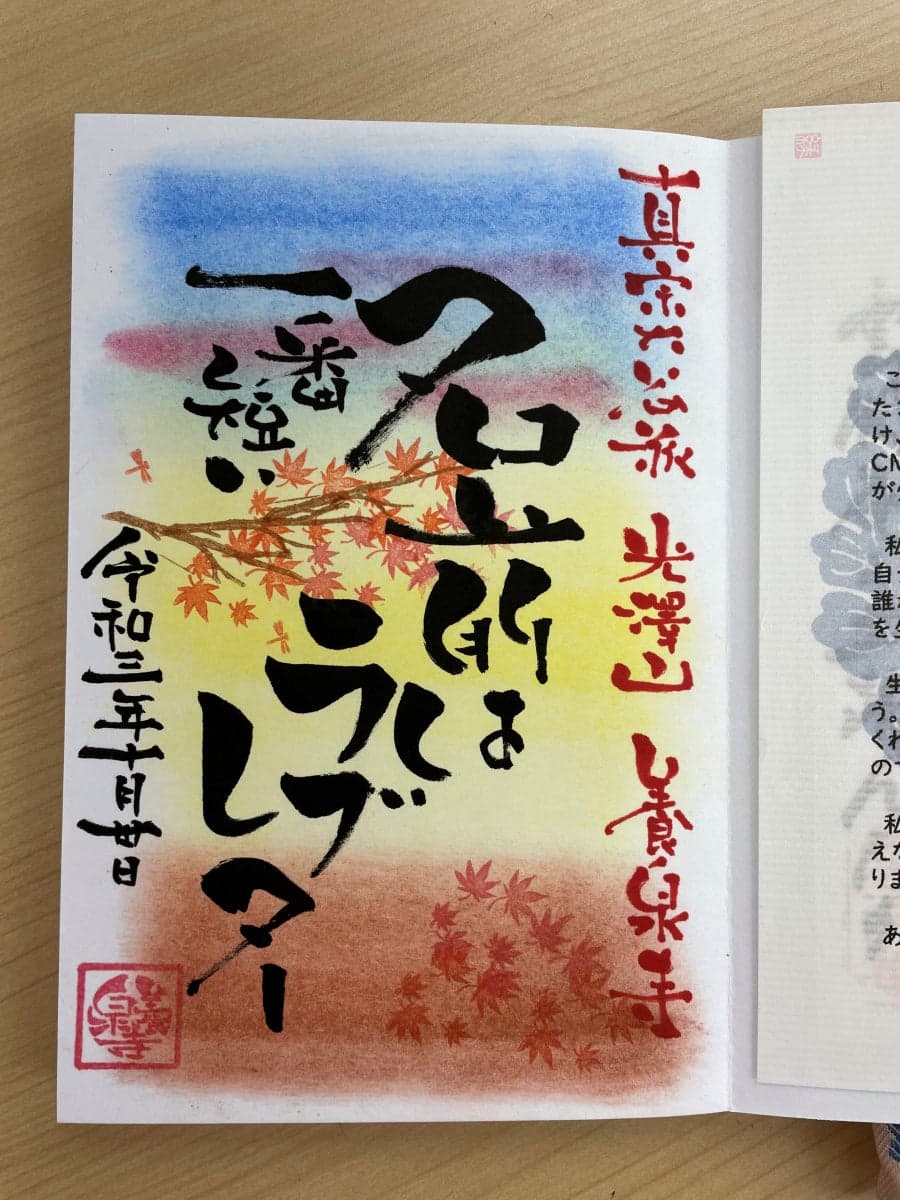 真宗大谷派 光澤山 養泉寺
名前は
一番短い
ラブ
レター
令和三年十月廿日
養泉寺
こ
た
け、
CM
が
私
自
誰
を
生
う。
くれ
の
私
えな
りま
あ